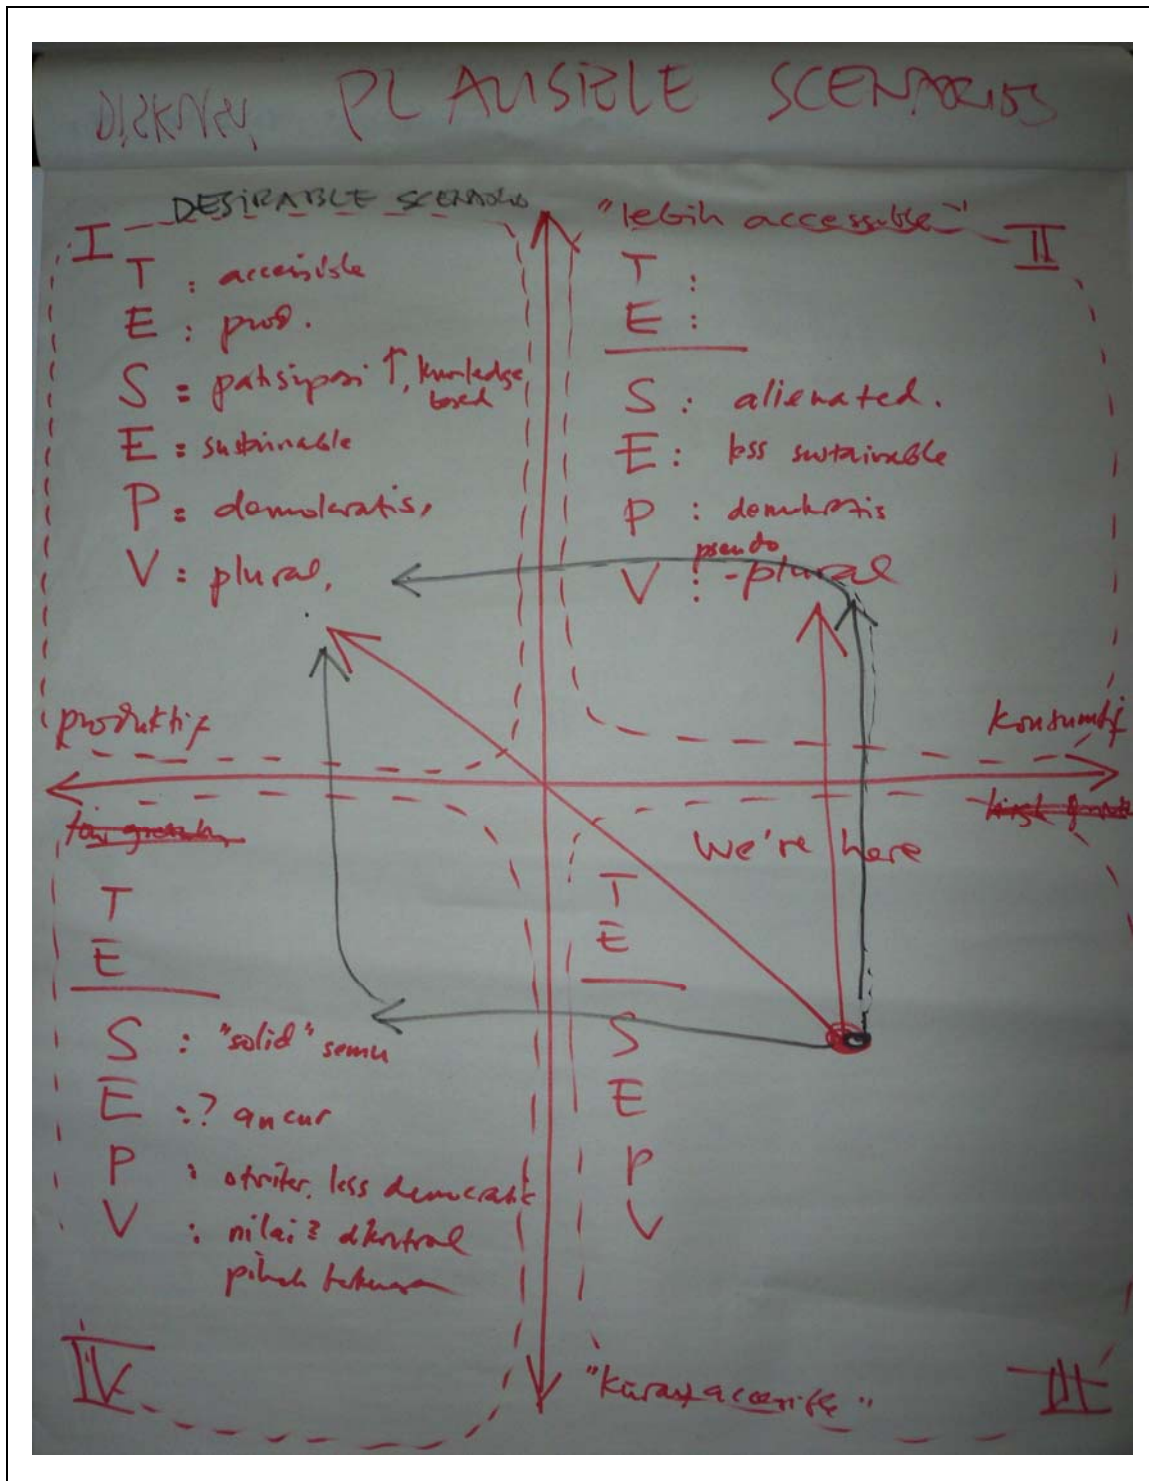 PLAUSIBLE SCENARIOS
DESIRABLE SCENARIO
I
T : accessible
E : prod.
S = patisipasi ↑, knowledge based
E = sustainable
P = demokratis,
V = plural,
"lebih accessible"
II
T :
E :
S : alienated.
E : less sustainable
P : demokratis
V : pseudo-plural
produktif
konsumtif
low growth
high growth
We're here
T
E
S : "solid" semu
E :? ancur
P : otriter, less democratic
V : nilai2 dikontrol
pihak
IV
T
E
S
E
P
V
"kurang accessible"
III